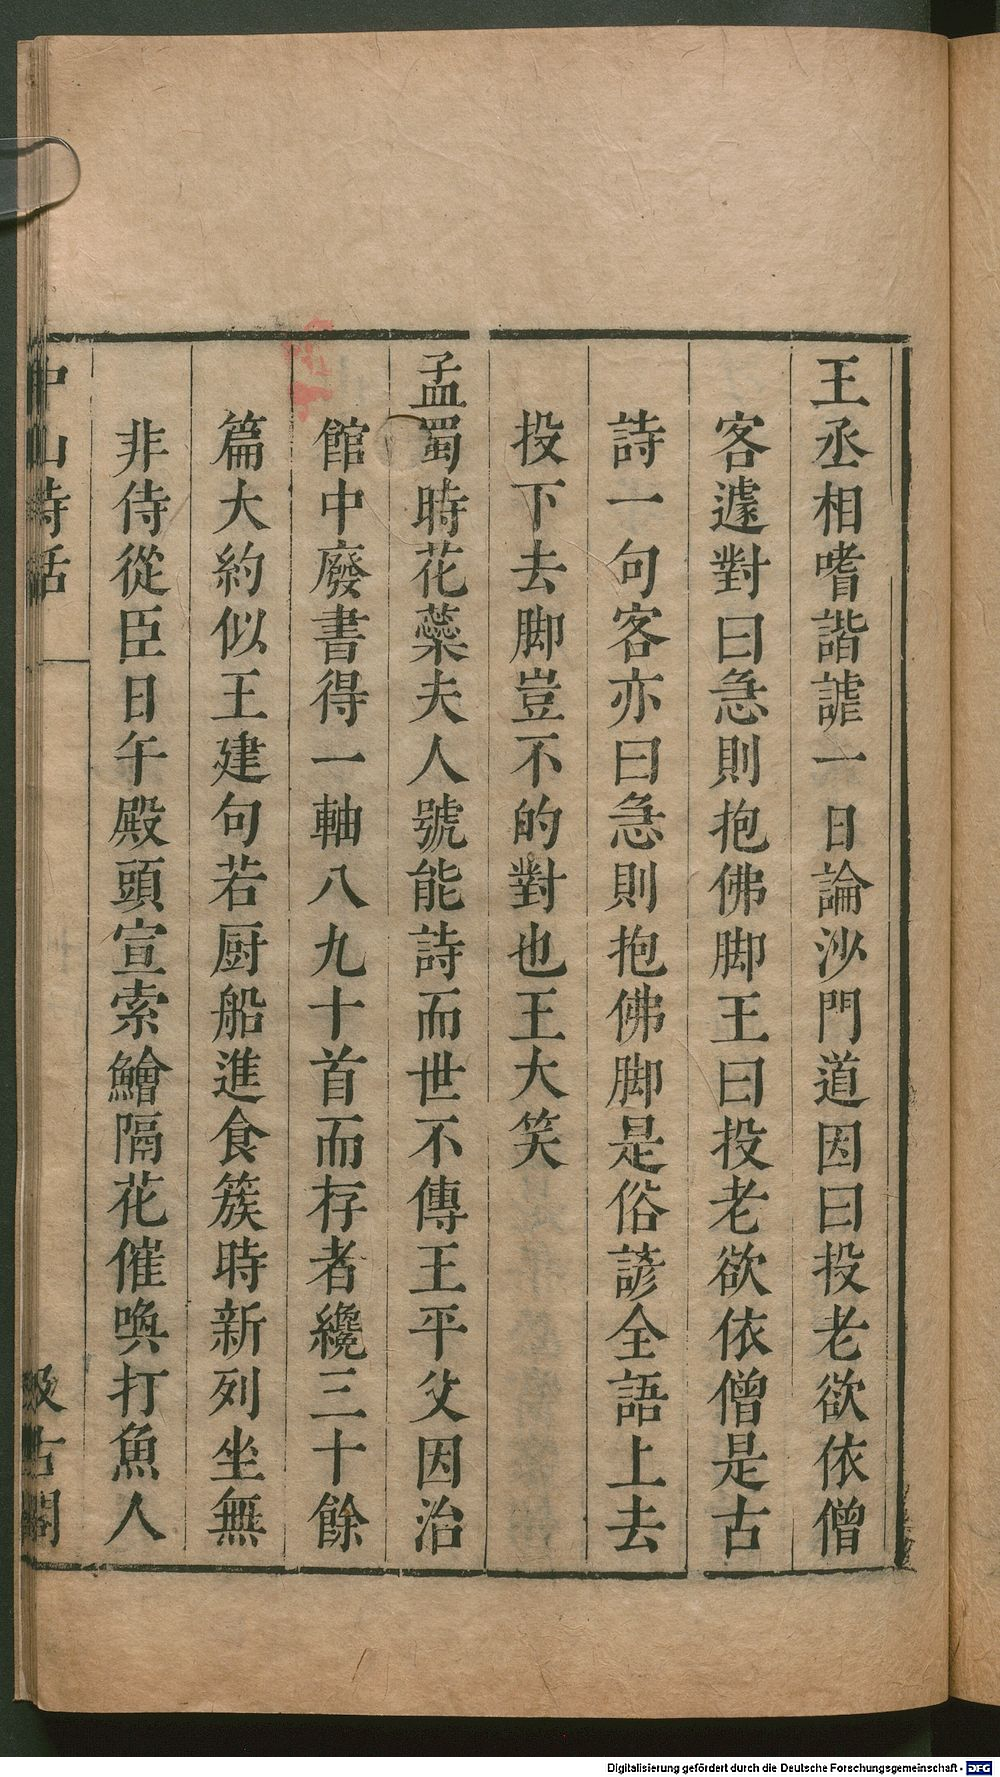 王丞相嗜諧謔一日論沙門道因曰投老欲依僧
客遽對曰急則抱佛脚王曰投老欲依僧是古
詩一句客亦曰急則抱佛脚是俗諺全語上去
投下去脚豈不的對也王大笑
孟蜀時花蘂夫人號能詩而世不傳王平父因治
館中廢書得一軸八九十首而存者纔三十餘
篇大約似王建句若厨船進食簇時新列坐無
非侍從臣日午殿頭宣索鱠隔花催喚打魚人
中山詩話
汲古閣
Digitalisierung gefördert durch die Deutsche Forschungsgemeinschaft - DFG